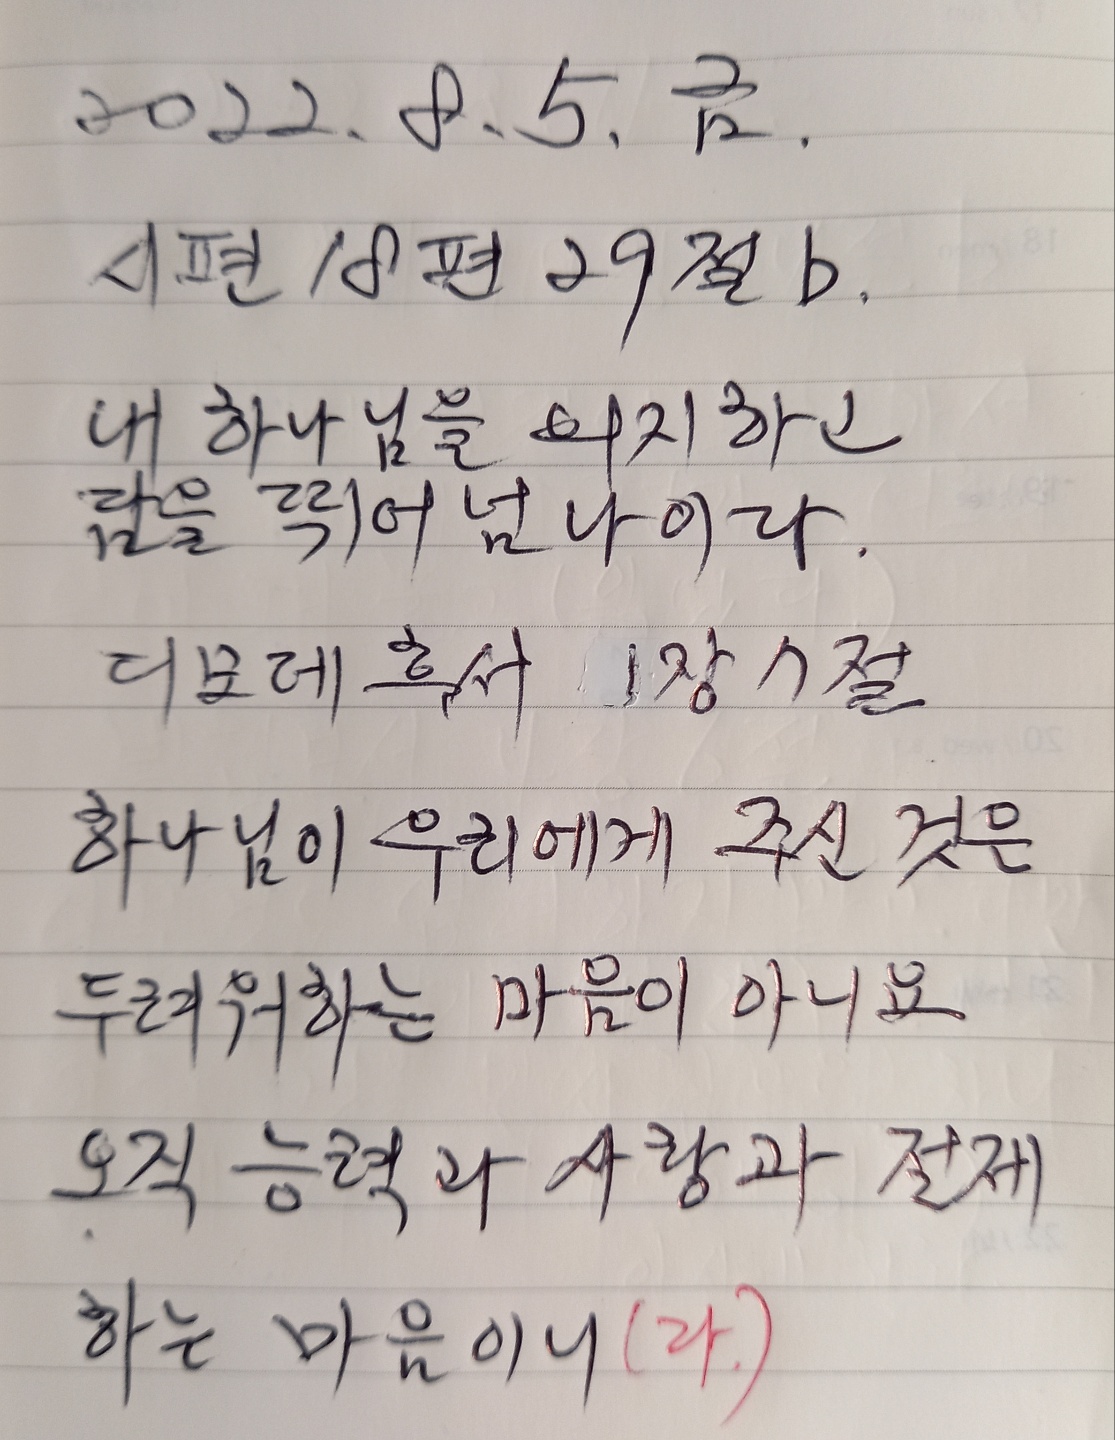 2022. 8. 5. 금.
시편 18편 29절 b.
내 하나님을 의지하고
담을 뛰어 넘나이다.
디모데 후서 1장 7절
하나님이 우리에게 주신 것은
두려워하는 마음이 아니요
오직 능력과 사랑과 절제
하는 마음이니(라.)